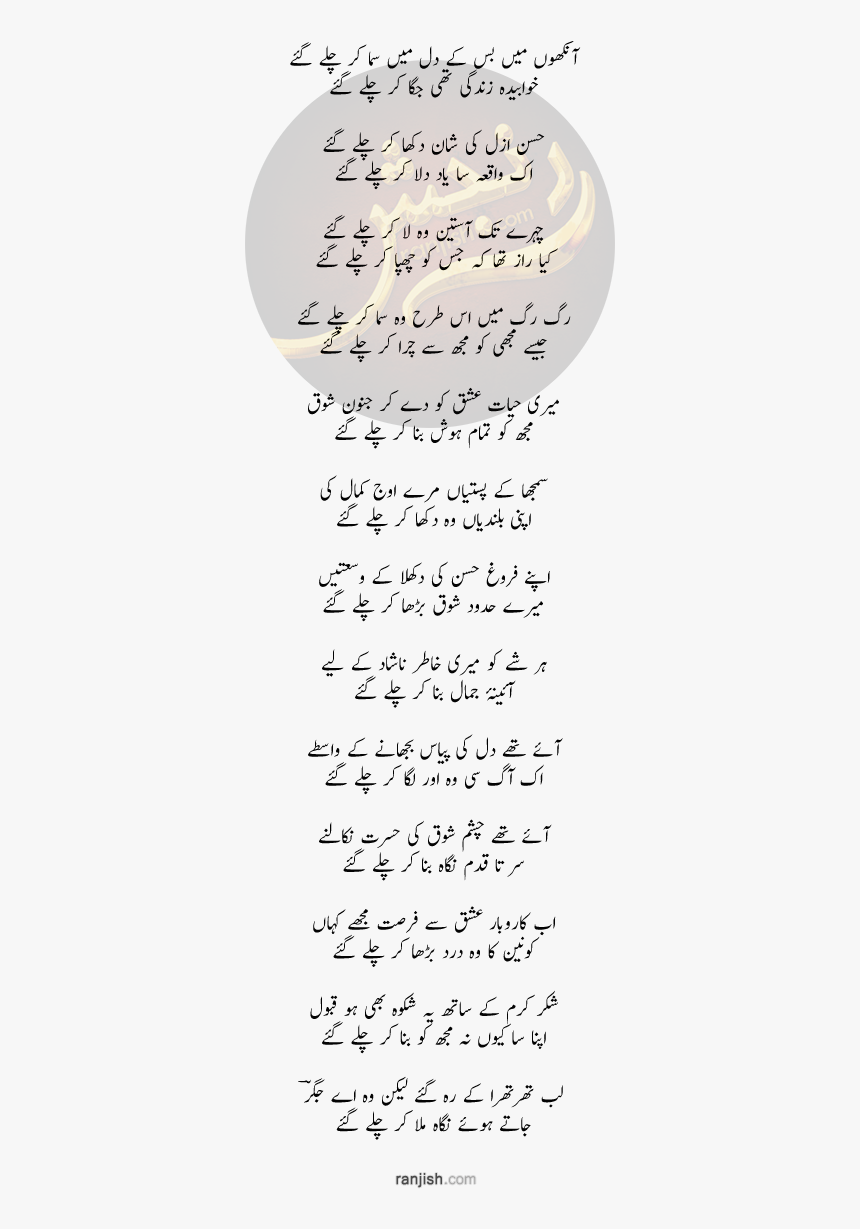 آنکھوں میں بس کے دل میں سما کر چلے گئے
خوابیدہ زندگی تھی جگا کر چلے گئے
حسن ازل کی شان دکھا کر چلے گئے
اک واقعہ سا یاد دلا کر چلے گئے
چہرے تک آستین وہ لا کر چلے گئے
کیا راز تھا کہ جس کو چھپا کر چلے گئے
رگ رگ میں اس طرح وہ سما کر چلے گئے
جیسے مجھی کو مجھ سے چرا کر چلے گئے
میری حیات عشق کو دے کر جنون شوق
مجھ کو تمام ہوش بنا کر چلے گئے
سمجھا کے پستیاں مرے اوج کمال کی
اپنی بلندیاں وہ دکھا کر چلے گئے
اپنے فروغ حسن کی دکھلا کے وسعتیں
میرے حدود شوق بڑھا کر چلے گئے
ہر شے کو میری خاطر ناشاد کے لیے
آئینۂ جمال بنا کر چلے گئے
آئے تھے دل کی پیاس بجھانے کے واسطے
اک آگ سی وہ اور لگا کر چلے گئے
آئے تھے چشم شوق کی حسرت نکالنے
سر تا قدم نگاہ بنا کر چلے گئے
اب کاروبار عشق سے فرصت مجھے کہاں
کونین کا وہ درد بڑھا کر چلے گئے
شکر کرم کے ساتھ یہ شکوہ بھی ہو قبول
اپنا سا کیوں نہ مجھ کو بنا کر چلے گئے
لب تھرتھرا کے رہ گئے لیکن وہ اے جگرؔ
جاتے ہوئے نگاہ ملا کر چلے گئے
رنجش
ranjish.com